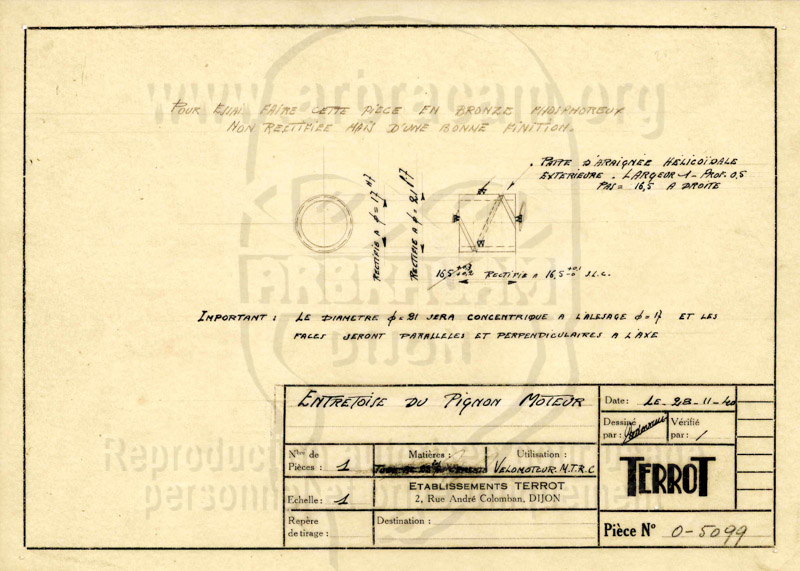 www.arbracam.org
POUR ESSAI FAIRE CETTE PIÈCE EN BRONZE PHOSPHOREUX
NON RECTIFIEE MAIS D'UNE BONNE FINITION.
PATTE D'ARAIGNÉE HELICOÏDALE
EXTERIEURE. LARGEUR 1 - PROF. 0,5
PAS = 16,5 A DROITE
RECTIFIE A ϕ = 17 H7
RECTIFIE A ϕ = 21
16,5 +0,3 +0,2 RECTIFIE A 16,5 +0,1 -0 S.L.C.
ARBRACAM
Dijon
IMPORTANT : LE DIAMETRE ϕ = 21 SERA CONCENTRIQUE A L'ALESAGE ϕ = 17 ET LES
FACES SERONT PARALLELES ET PERPENDICULAIRES A L'AXE
ENTRETOISE DU PIGNON MOTEUR
Date: LE 28-11-40
Dessiné par :
Vérifié par :
Nbre de Pièces : 1
Matières :
Utilisation :
VELOMOTEUR. M.T.R.C
ETABLISSEMENTS TERROT
2, Rue André Colomban, DIJON
Echelle : 1
Repère de tirage :
Destination :
TERROT
Pièce N° 0-5099